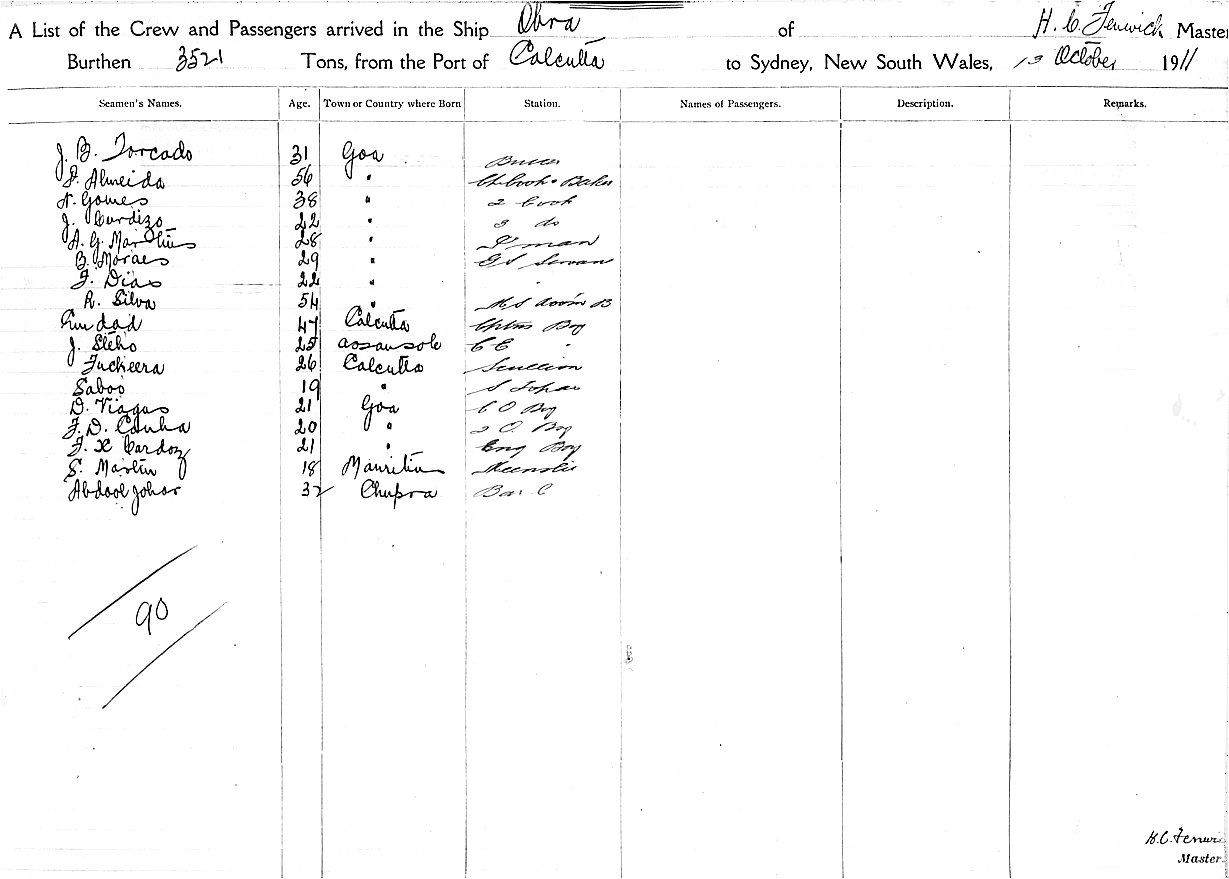 A List of the Crew and Passengers arrived in the Ship Obra of H. C. Fenwick Master
Burthen 3521 Tons, from the Port of Calcutta to Sydney, New South Wales, 13 October 1911
Seamen's Names. Age. Town or Country where Born Station. Names of Passengers. Description. Remarks.
J. B. Torcado 31 Goa
Almeida 56 " Ch Cook & Baker
N. Gomes 38 " 2 Cook
J. Curdizo 22 " 3 do
A. G. Martins 28 " P'man
B. Moraes 29 " G S Servan
F. Dias 22 "
R. Silva 54 " B
47 Calcutta Boy
J. 25 Assansole
Fucheera 26 Calcutta
Saboo 19 " S Topas
D. Viagas 21 Goa C O Boy
F. D. Cunha 20 " 2 O Boy
F. X Cardoz 21 " Eng Boy
S. Martin 18 Mauritius
Abdool Johar 32 Chupra Bar C
90
H. C. Fenwi
Master